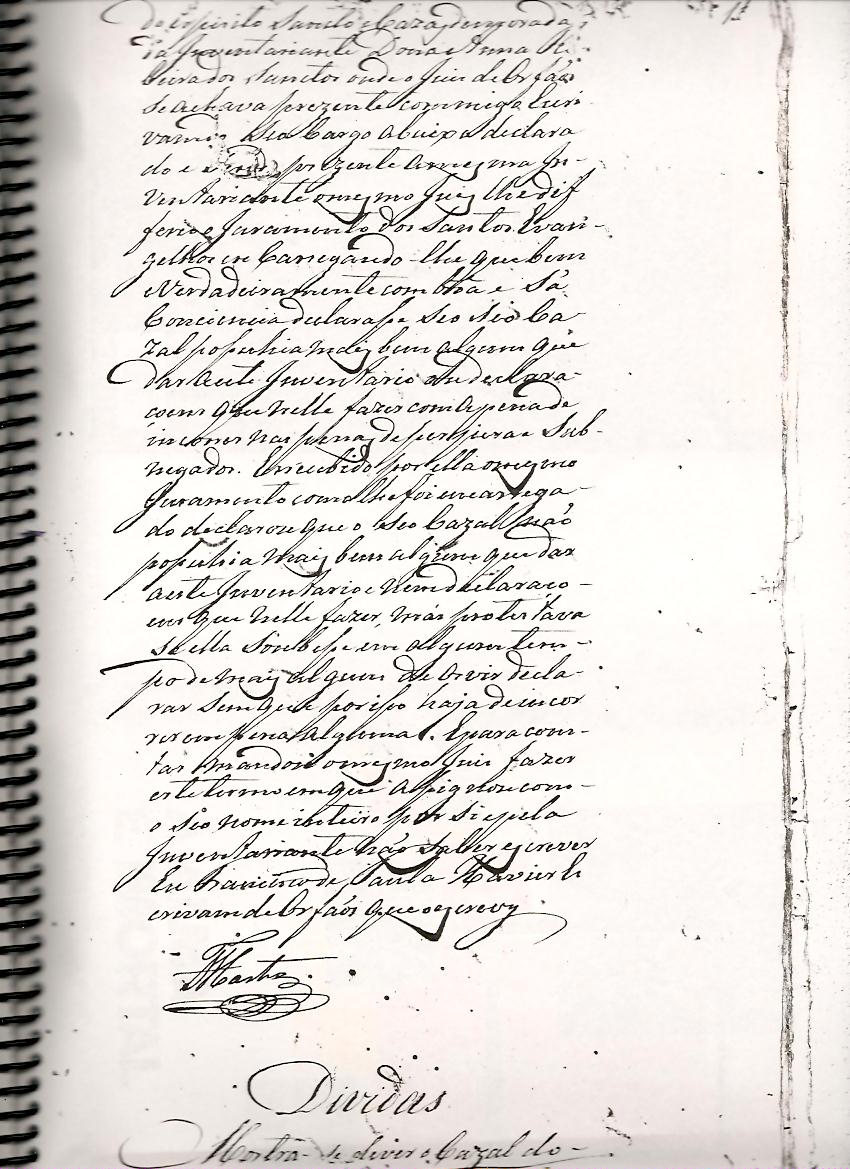 do Espirito Sancto e Caza de morada
da Inventariante Dona Anna Ri-
beira dos Sanctos onde o Juis de Orfãos
se achava prezente commigo Escri-
vam de seo Cargo abaixo declara
do e prezente a mesma In-
ventariante o mesmo Juiz lhe dif
ferio o Juramento dos Santos Evan-
gelhos en Carregando-lhe que bem
e Verdadeiramente com bôa e sã
Conciencia declarasse se o seo Ca-
zal possuhia mais bem algum que
dar a este Inventario ou declara-
coens que nelle fazer com a pena de
incorrer nas penas de perjura e Sub-
negador. E recebido por ella o mesmo
Juramento como lhe foi encarrega-
do declarou que o seo Cazal não
possuhia mais bem algum que dar
a este Inventario e nem declaraco-
ens que nelle fazer, mas protestava
se ella soubesse em algum tem-
po de mais algum de o vir decla-
rar sem que por isso haja de incor
rer em pena alguma. E para cons-
tar mandou o mesmo Juis fazer
este termo em que assignou com
o seo nome inteiro por si e pela
Inventariante não saber escrever
Eu Francisco de Paula Xavier Es
crivam de Orfãos que o escrevy
Dividas
Mostra-se dever o Cazal do-